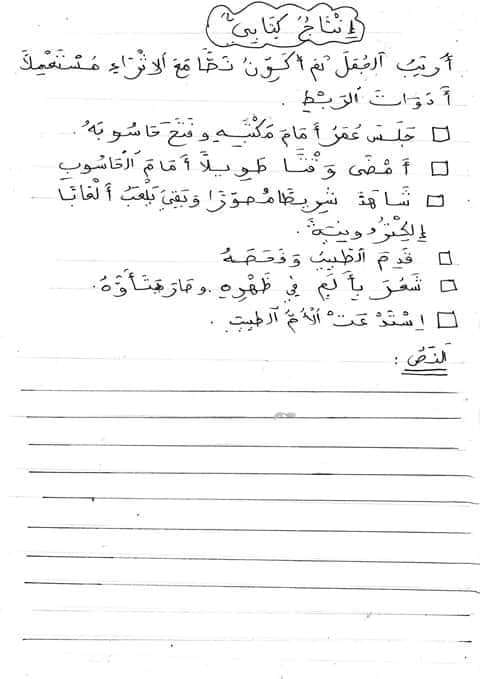 إِنْتَاجٌ كِتَابِيٌّ
أُرَتِّبُ الجُمَلَ ثم أُكَوِّنُ نَصًّا مَعَ الإِثْرَاءِ مُسْتَعْمِلاً
أَدَوَاتَ الرَّبْطِ .
□ جَلَسَ عُمَرُ أَمَامَ مَكْتَبِهِ وفَتَحَ حَاسُوبَهُ.
□ أَمْضَى وَقْتًا طَوِيلاً أَمَامَ الحَاسُوبِ
□ شَاهَدَ شَرِيطًا مُصَوَّرًا وَبَقِيَ يَلْعَبُ أَلْعَابًا
إِلِكْتِرُونِيَّةً.
□ قَدِمَ الطَّبِيبُ وَفَحَصَهُ
□ شَعَرَ بِأَلَمٍ فِي ظَهْرِهِ. وصَارَ يَتَأَوَّهُ.
□ اِسْتَدْعَتْ الأُمُّ الطَّبِيبَ .
النَّصُّ :